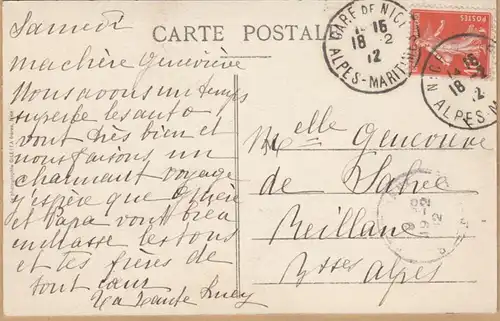 CARTE POSTALE
Samedi
ma chère Geneviève
Nous avons un temps
superbe les auto
vont très bien et
nous faisons un
charmant voyage
j'espère que
et Papa vont bien
embrasse les tous
et tes frères de
tout cœur
Ta Tante Lucy
Melle Geneviève
de
Reillane
Bsses Alpes
GARE DE NICE
14-15
18-2
12
ALPES-MARITIMES
NICE
14-15
18-2
12
ALPES-M
19-2
12
POSTES
10